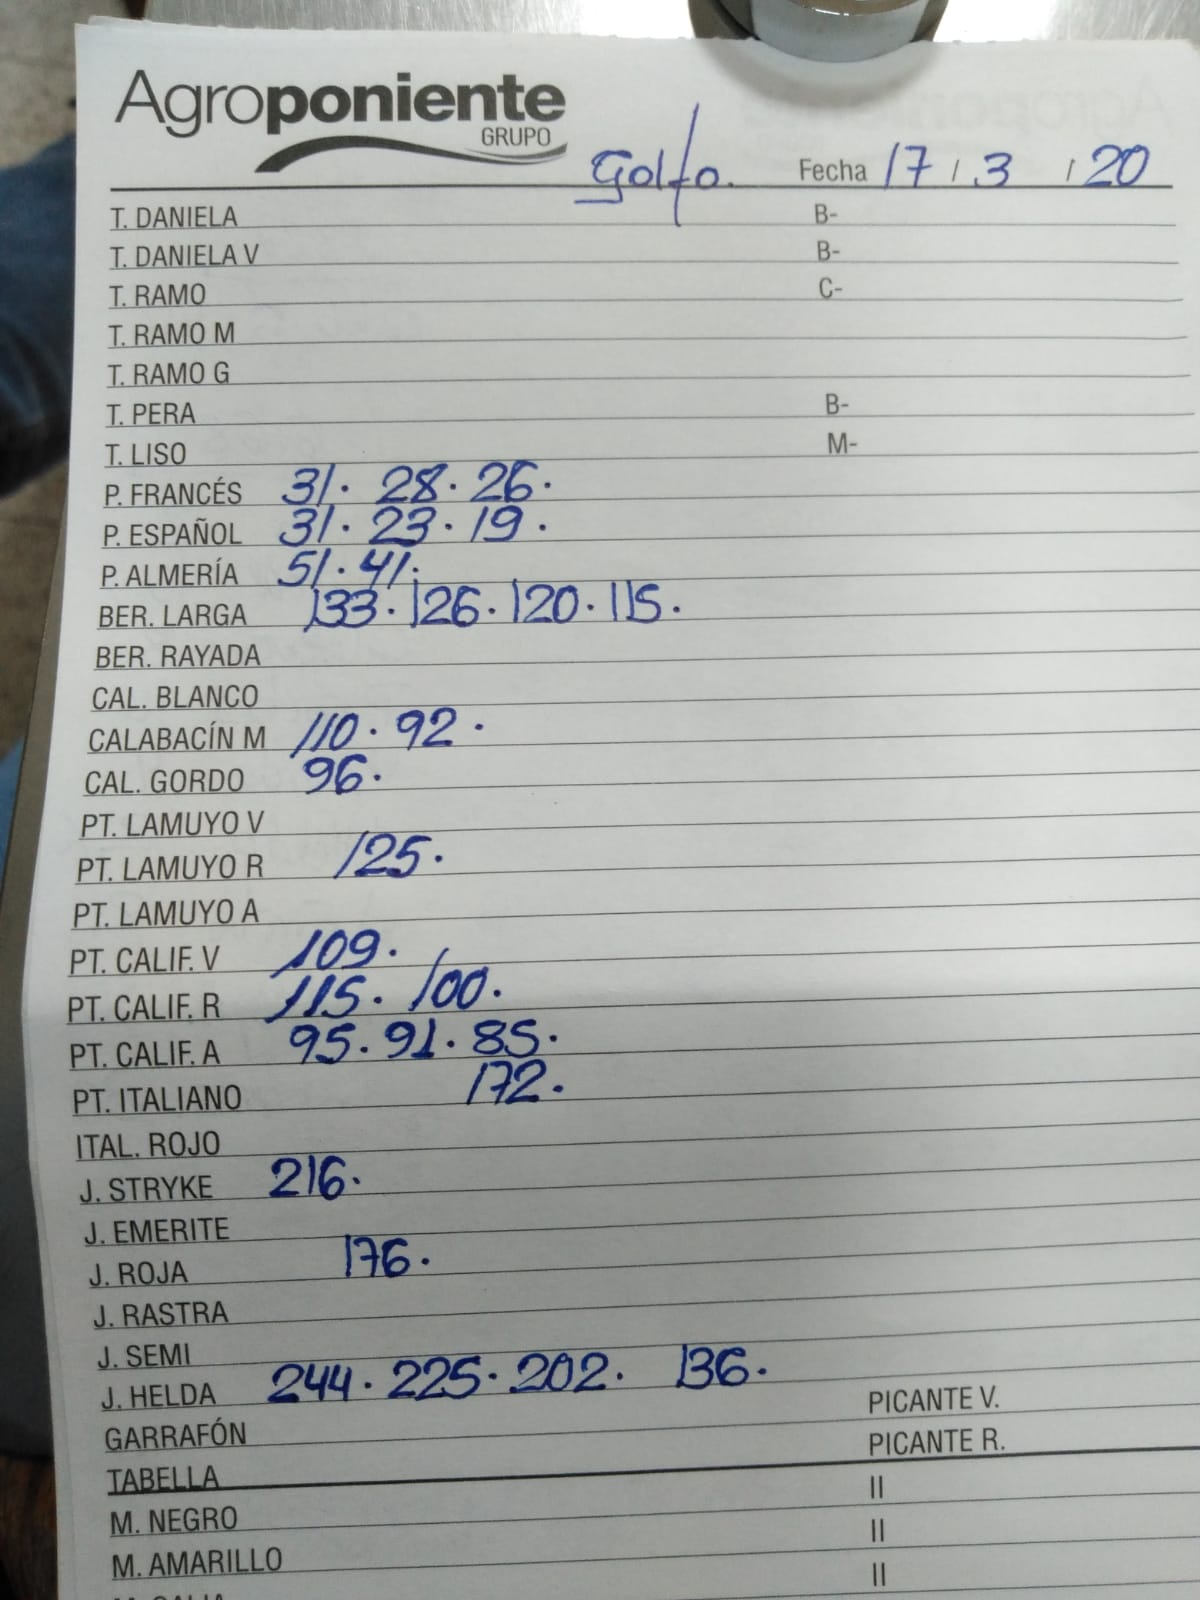 Agroponiente
GRUPO
Golfo. Fecha 17 / 3 / 20
T. DANIELA B-
T. DANIELA V B-
T. RAMO C-
T. RAMO M
T. RAMO G
T. PERA B-
T. LISO M-
P. FRANCÉS 31. 28. 26.
P. ESPAÑOL 31. 23. 19.
P. ALMERÍA 51. 41.
BER. LARGA 133. 126. 120. 115.
BER. RAYADA
CAL. BLANCO
CALABACÍN M 110. 92.
CAL. GORDO 96.
PT. LAMUYO V
PT. LAMUYO R 125.
PT. LAMUYO A
PT. CALIF. V 109.
PT. CALIF. R 115. 100.
PT. CALIF. A 95. 91. 85.
PT. ITALIANO 172.
ITAL. ROJO
J. STRYKE 216.
J. EMERITE
J. ROJA 176.
J. RASTRA
J. SEMI
J. HELDA 244. 225. 202. 136.
GARRAFÓN PICANTE V.
TABELLA PICANTE R.
M. NEGRO II
M. AMARILLO II
II